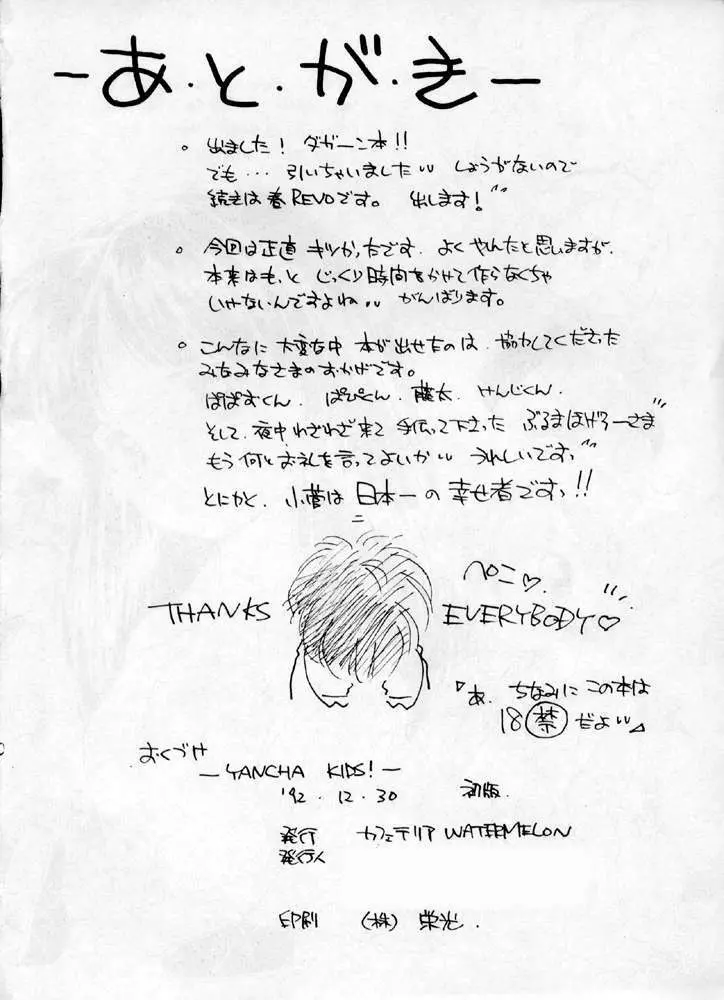 -あ・と・が・き-
・出ました! ダガーン本!!
でも… 引いちゃいました〃 しょうがないので
続きは春REVOです。 出します!〃
・今回は正直 キツかったです。よくやんたと思いますが、
本来はもっと じっくり時間をかせて作らなくちゃ
いけないんですよね〃 がんばります。
・こんなに 大変な中 本が出せたのは、協力してくださった
みなみなさまのおかげです。
ぱぱすくん、ぱぴくん、藤太、けんじくん、
そして、夜中わざわざ来て 手伝って下さった ぶるまほげろーさま
もう何とお礼を言ってよいか〃 うれしいですっ
とにかく、小菅は 日本一の 幸せ者ですっ!!
ペこ♡
THANKS EVERYBODY♡
『あ、ちなみに この本は
18禁 だよ〃』
おくづけ
-YANCHA KIDS!-
'92.12.30 初版.
発行 カフェテリア WATERMELON
発行人
印刷 (株) 栄光.